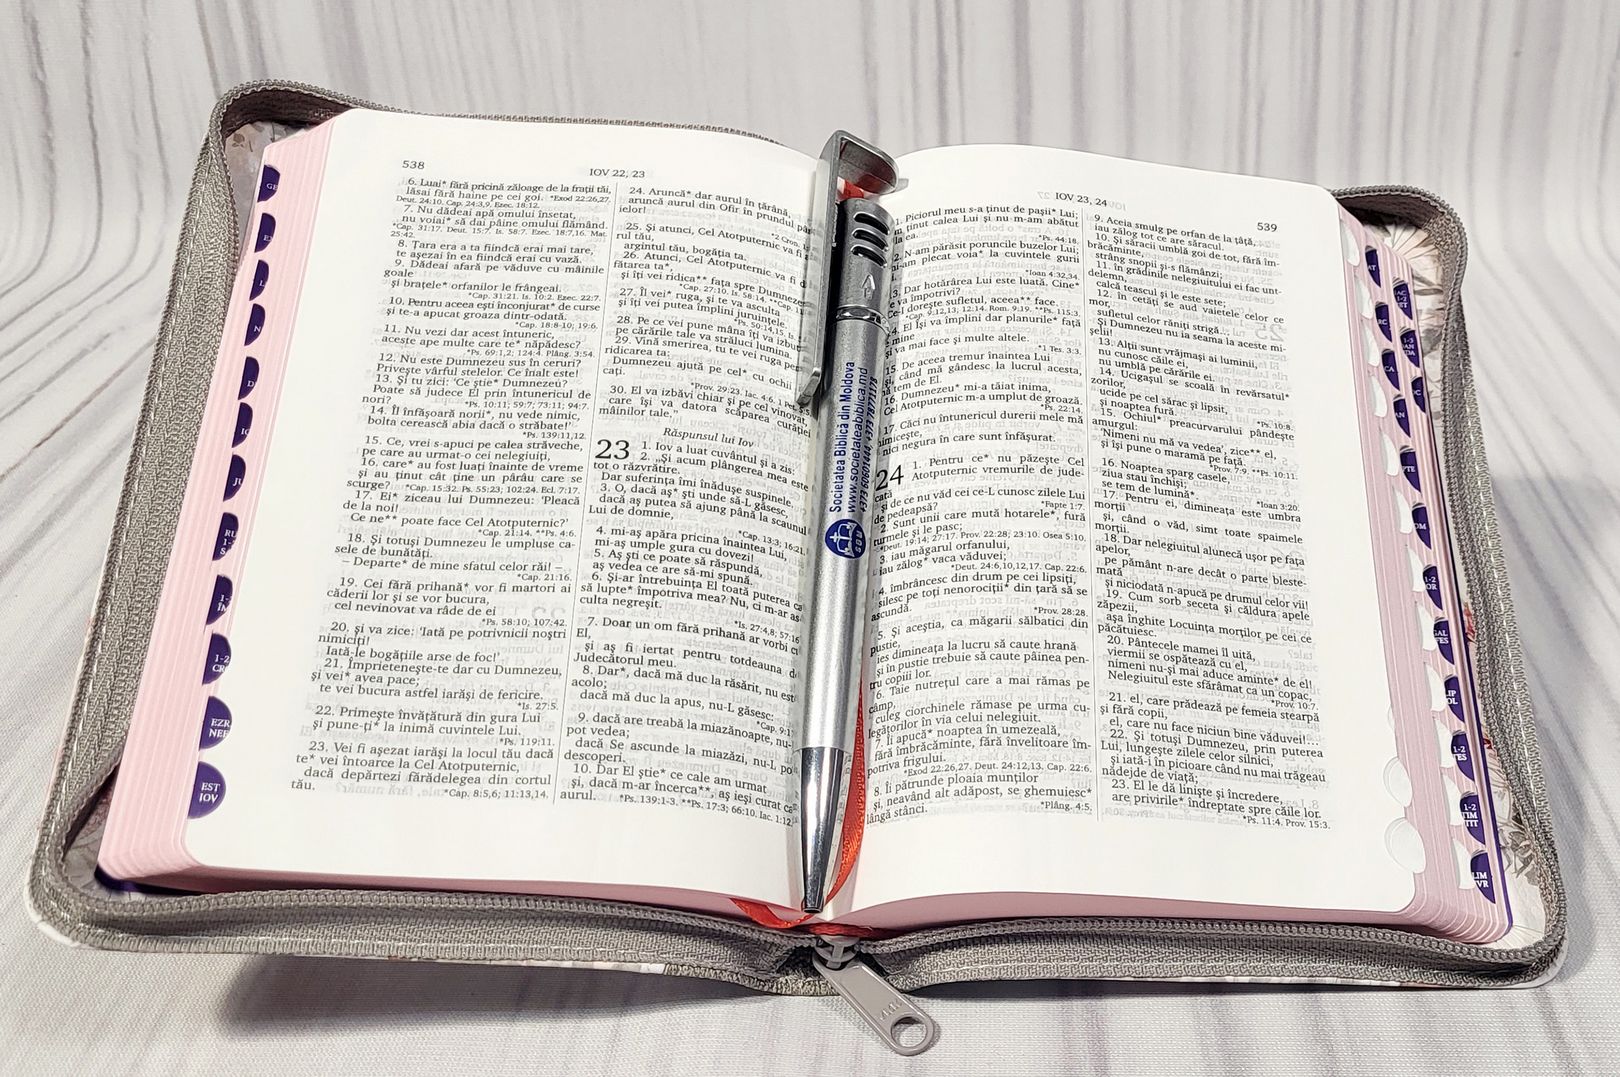 538
IOV 22, 23
6. Luai* fără pricină zăloage de la frații tăi,
lăsai fără haine pe cei goi. *Exod 22:26,27.
Deut. 24:10. Cap. 24:3,9. Ezec. 18:12.
7. Nu dădeai apă omului însetat,
nu voiai* să dai pâine omului flămând.
*Cap. 31:17. Deut. 15:7. Is. 58:7. Ezec. 18:7,16. Mat.
25:42.
8. Țara era a ta fiindcă erai mai tare,
te așezai în ea fiindcă erai cu vază.
9. Dădeai afară pe văduve cu mâinile
goale
și brațele* orfanilor le frângeai.
*Cap. 31:21. Is. 10:2. Ezec. 22:7.
10. Pentru aceea ești înconjurat* de curse
și te-a apucat groaza dintr-odată.
*Cap. 18:8-10; 19:6.
11. Nu vezi dar acest întuneric,
aceste ape multe care te* năpădesc?
*Ps. 69:1,2; 124:4. Plâng. 3:54.
12. Nu este Dumnezeu sus în ceruri?
Privește vârful stelelor. Ce înalt este!
13. Și tu zici: 'Ce știe* Dumnezeu?
Poate să judece El prin întunericul de
nori?
*Ps. 10:11; 59:7; 73:11; 94:7.
14. Îl înfășoară norii*, nu vede nimic,
bolta cerească abia dacă o străbate!'
*Ps. 139:11,12.
15. Ce, vrei s-apuci pe calea străveche,
pe care au urmat-o cei nelegiuiți,
16. care* au fost luați înainte de vreme
și au ținut cât ține un pârâu care se
scurge?
*Cap. 15:32. Ps. 55:23; 102:24. Ecl. 7:17.
17. Ei* ziceau lui Dumnezeu: 'Pleacă
de la noi!
Ce ne** poate face Cel Atotputernic?'
*Cap. 21:14. **Ps. 4:6.
18. Și totuși Dumnezeu le umpluse ca-
sele de bunătăți.
– Departe* de mine sfatul celor răi! –
*Cap. 21:16.
19. Cei fără prihană* vor fi martori ai
căderii lor și se vor bucura,
cel nevinovat va râde de ei
*Ps. 58:10; 107:42.
20. și va zice: 'Iată pe potrivnicii noștri
nimiciți!
Iată-le bogățiile arse de foc!'
21. Împrietenește-te dar cu Dumnezeu,
și vei* avea pace;
te vei bucura astfel iarăși de fericire.
*Is. 27:5.
22. Primește învățătură din gura Lui
și pune-ți* la inimă cuvintele Lui.
*Ps. 119:11.
23. Vei fi așezat iarăși la locul tău dacă
te* vei întoarce la Cel Atotputernic,
dacă depărtezi fărădelegea din cortul
tău.
*Cap. 8:5,6; 11:13,14.
24. Aruncă* dar aurul în țărână,
aruncă aurul din Ofir în prundul
ielor!
*2 Cron.
25. Și atunci, Cel Atotputernic va fi
rul tău,
argintul tău, bogăția ta.
26. Atunci, Cel Atotputernic va fi
fătarea ta*,
și îți vei ridica** fața spre Dumnezeu
*Cap. 27:10. Is. 58:14.
27. Îl vei* ruga, și te va asculta
și îți vei putea împlini juruințele.
*Ps. 50:14,15.
28. Pe ce vei pune mâna îți va izbuti
pe cărările tale va străluci lumina.
29. Vină smerirea, tu te vei ruga pe
ridicarea ta:
Dumnezeu ajută pe cel* cu ochii
cați.
*Prov. 29:23. Iac. 4:6. 1 Pet. 5:5.
30. El va izbăvi chiar și pe cel vinovat,
care își va datora scăparea curăției
mâinilor tale,"
Răspunsul lui Iov
23
1. Iov a luat cuvântul și a zis:
2. „Și acum plângerea mea este
tot o răzvrătire.
Dar suferința îmi înăduşe suspinele.
3. O, dacă aș* ști unde să-L găsesc,
dacă aș putea să ajung până la scaunul
Lui de domnie,
*Cap. 13:3; 16:21.
4. mi-aș apăra pricina înaintea Lui,
mi-aș umple gura cu dovezi!
5. Aș ști ce poate să răspundă,
aș vedea ce are să-mi spună.
6. Și-ar întrebuința El toată puterea ca
să lupte* împotriva mea? Nu, ci m-ar as-
culta negreșit.
*Is. 27:4,8; 57:16
7. Doar un om fără prihană ar vorbi cu
El,
și aș fi iertat pentru totdeauna de
Judecătorul meu.
8. Dar*, dacă mă duc la răsărit, nu est
acolo;
dacă mă duc la apus, nu-L găsesc;
*Cap. 9:1
9. dacă are treabă la miazănoapte, nu-
pot vedea;
dacă Se ascunde la miazăzi, nu-L pot
descoperi.
10. Dar El știe* ce cale am urmat
și, dacă m-ar încerca**, aș ieși curat ca
aurul.
*Ps. 139:1-3. **Ps. 17:3; 66:10. Iac. 1:12.
Societatea Biblică din Moldova
www.societateabiblica.md
+373 60601444, +373 78771178
SBM
IOV 23, 24
539
1. Piciorul meu s-a ținut de pașii* Lui;
m ținut calea Lui și nu m-am abătut
la ea.
*Ps. 44:18.
2. N-am părăsit poruncile buzelor Lui;
mi-am plecat voia* la cuvintele gurii
*Ioan 4:32,34.
13. Dar hotărârea Lui este luată. Cine*
va împotrivi?
Ce-I dorește sufletul, aceea** face.
*Cap. 9:12,13; 12:14. Rom. 9:19. **Ps. 115:3.
14. El Își va împlini dar planurile* față
și va mai face și multe altele.
*1 Tes. 3:3.
15. De aceea tremur înaintea Lui
când mă gândesc la lucrul acesta,
tem de El.
16. Dumnezeu* mi-a tăiat inima,
Cel Atotputernic m-a umplut de groază.
*Ps. 22:14.
17. Căci nu întunericul durerii mele mă
nimicește,
nici negura în care sunt înfășurat.
24
1. Pentru ce* nu păzește Cel
Atotputernic vremurile de jude-
cată
și de ce nu văd cei ce-L cunosc zilele Lui
de pedeapsă?
*Fapte 1:7.
2. Sunt unii care mută hotarele*, fură
turmele și le pasc;
*Deut. 19:14; 27:17. Prov. 22:28; 23:10. Osea 5:10.
3. iau măgarul orfanului,
iau zălog* vaca văduvei;
*Deut. 24:6,10,12,17. Cap. 22:6.
4. îmbrâncesc din drum pe cei lipsiți,
silesc pe toți nenorociții* din țară să se
ascundă.
*Prov. 28:28.
5. Și aceștia, ca măgarii sălbatici din
pustie,
ies dimineața la lucru să caute hrană
și în pustie trebuie să caute pâinea pen-
tru copiii lor.
6. Taie nutrețul care a mai rămas pe
câmp,
culeg ciorchinele rămase pe urma cu-
legătorilor în via celui nelegiuit.
7. Îi apucă* noaptea în umezeală,
fără îmbrăcăminte, fără învelitoare îm-
potriva frigului.
*Exod 22:26,27. Deut. 24:12,13. Cap. 22:6.
8. Îi pătrunde ploaia munților
și, neavând alt adăpost, se ghemuiesc*
lângă stânci.
*Plâng. 4:5.
9. Aceia smulg pe orfan de la țâță,
iau zălog tot ce are săracul.
10. Și săracii umblă goi de tot, fără îm-
brăcăminte,
strâng snopii și-s flămânzi;
11. în grădinile nelegiuitului ei fac unt-
delemn,
calcă teascul și le este sete;
12. în cetăți se aud vaietele celor ce
mor,
sufletul celor răniți strigă...
Și Dumnezeu nu ia seama la aceste mi-
șelii!
13. Alții sunt vrăjmași ai luminii,
nu cunosc căile ei,
nu umblă pe cărările ei.
14. Ucigașul se scoală în revărsatul*
zorilor,
ucide pe cel sărac și lipsit,
și noaptea fură.
*Ps. 10:8.
15. Ochiul* preacurvarului pândește
amurgul:
'Nimeni nu mă va vedea', zice** el,
și își pune o maramă pe față.
*Prov. 7:9. **Ps. 10:11.
16. Noaptea sparg casele,
ziua stau închiși;
se tem de lumină*.
*Ioan 3:20.
17. Pentru ei, dimineața este umbra
morții
și, când o văd, simt toate spaimele
morții.
18. Dar nelegiuitul alunecă ușor pe fața
apelor,
pe pământ n-are decât o parte bleste-
mată
și niciodată n-apucă pe drumul celor vii!
19. Cum sorb seceta și căldura apele
zăpezii,
așa înghite Locuința morților pe cei ce
păcătuiesc.
20. Pântecele mamei îl uită,
viermii se ospătează cu el,
nimeni nu-și mai aduce aminte* de el!
Nelegiuitul este sfărâmat ca un copac,
*Prov. 10:7.
21. el, care prădează pe femeia stearpă
și fără copii,
el, care nu face niciun bine văduvei!...
22. Și totuși Dumnezeu, prin puterea
Lui, lungește zilele celor silnici,
și iată-i în picioare când nu mai trăgeau
nădejde de viață;
23. El le dă liniște și încredere,
are privirile* îndreptate spre căile lor.
*Ps. 11:4. Prov. 15:3.
EZR
NEE
EST
IOV